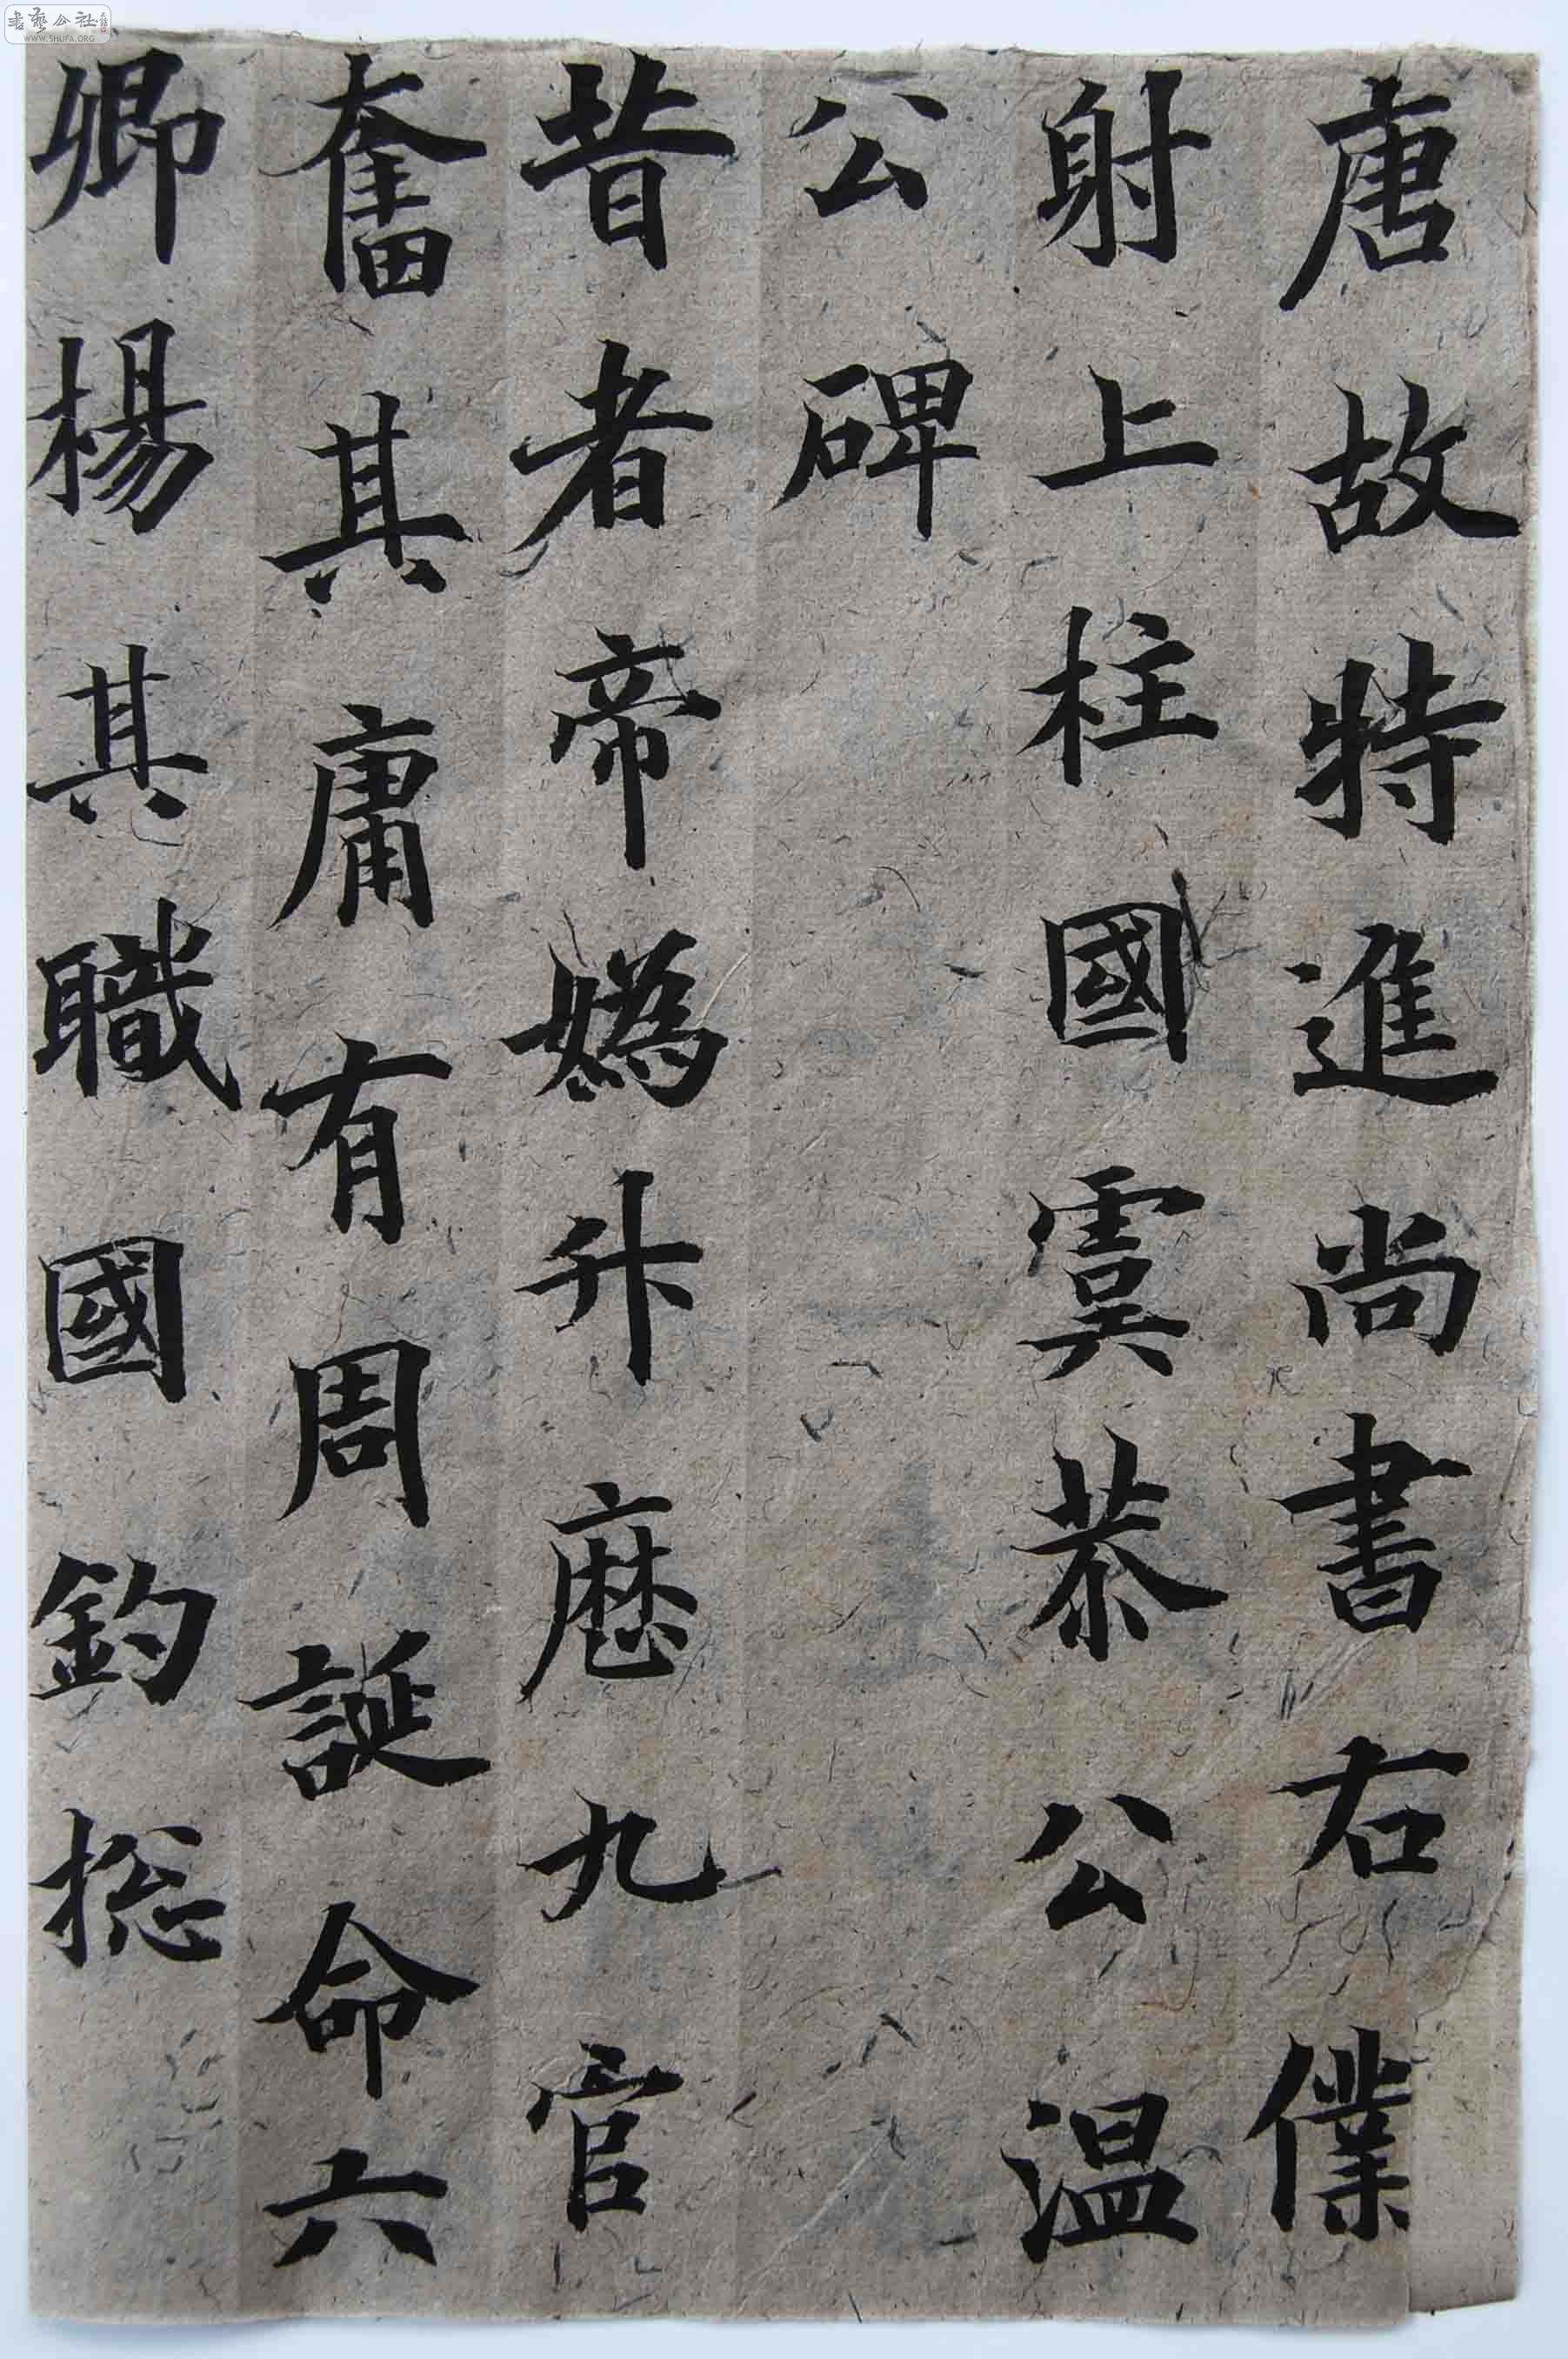 唐故特進尚書右僕
射上柱國虞恭公温
公碑
昔者帝媯升歷九官
奮其庸有周誕命六
卿楊其職國鈞捴
書藝公社
WWW.SHUFA.ORG